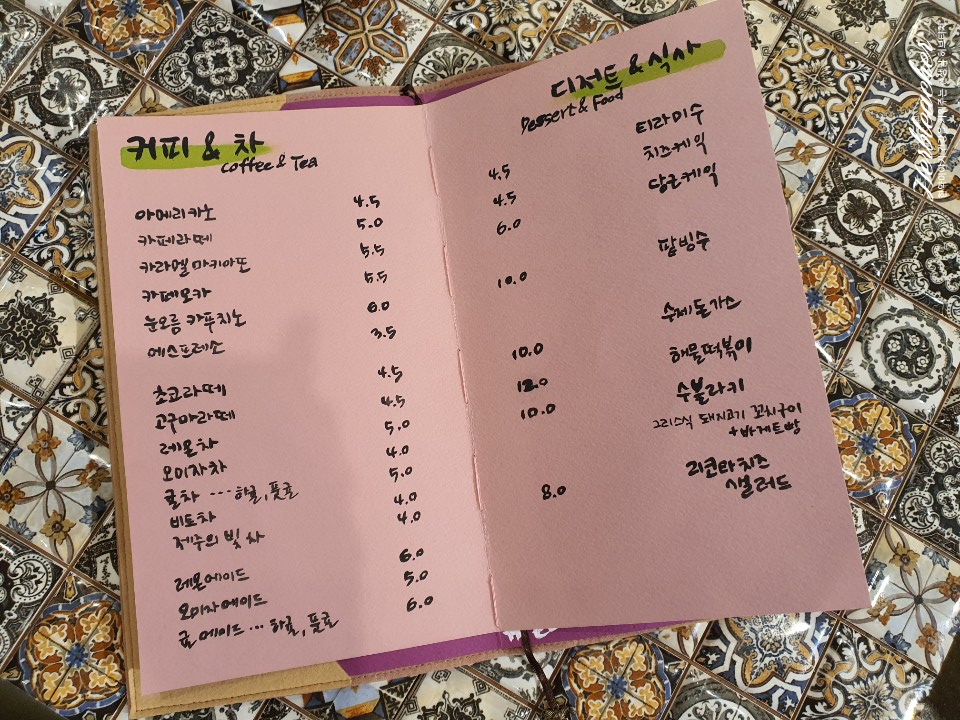 커피 & 차
Coffee & Tea
아메리카노 4.5
카페라떼 5.0
카라멜마키아또 5.5
카페모카 5.5
눈오름 카푸치노 6.0
에스프레소 3.5
초코라떼 4.5
고구마라떼 4.5
레몬차 5.0
오미자차 4.0
귤차 ... 하귤, 풋귤 5.0
비트차 4.0
제주의 빛 차 4.0
레몬에이드 6.0
오미자에이드 5.0
귤에이드 ... 하귤, 풋귤 6.0
디저트 & 식사
Dessert & Food
티라미수 4.5
치즈케익 4.5
당근케익 6.0
팥빙수 10.0
수제돌가스 10.0
해물떡볶이 12.0
수블라키 10.0
그리스식 돼지고기 꼬치구이
+ 바게트빵
리코타치즈
샐러드 8.0